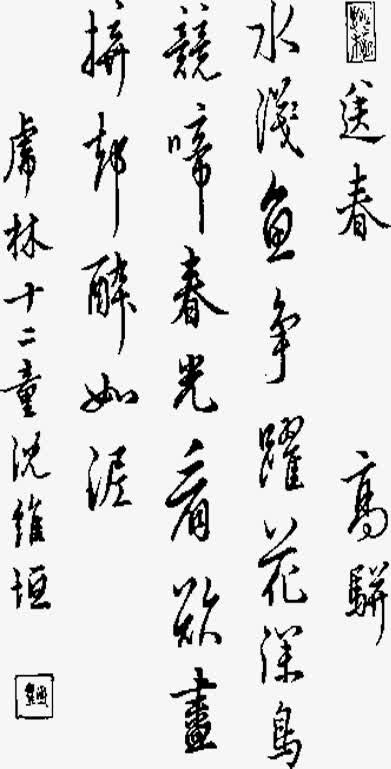 送春 高駢
水淺魚爭躍花深鳥
競啼春光看欲盡
拚卻醉如泥
虎林十二童沈維垣